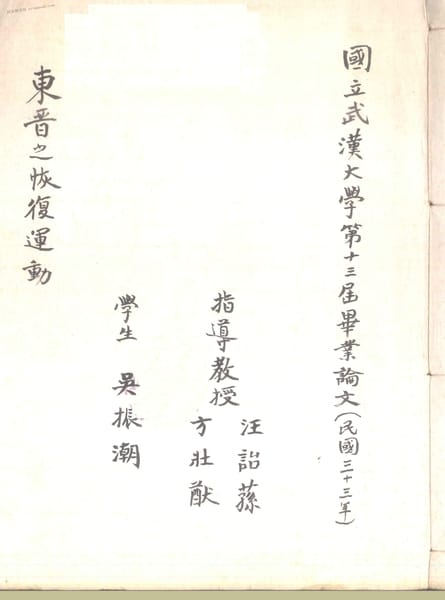 國立武漢大學第十三届畢業論文(民國三十三年)
指導教授
汪詒蓀
方壯猷
學生 吳振潮
東晉之恢復運動